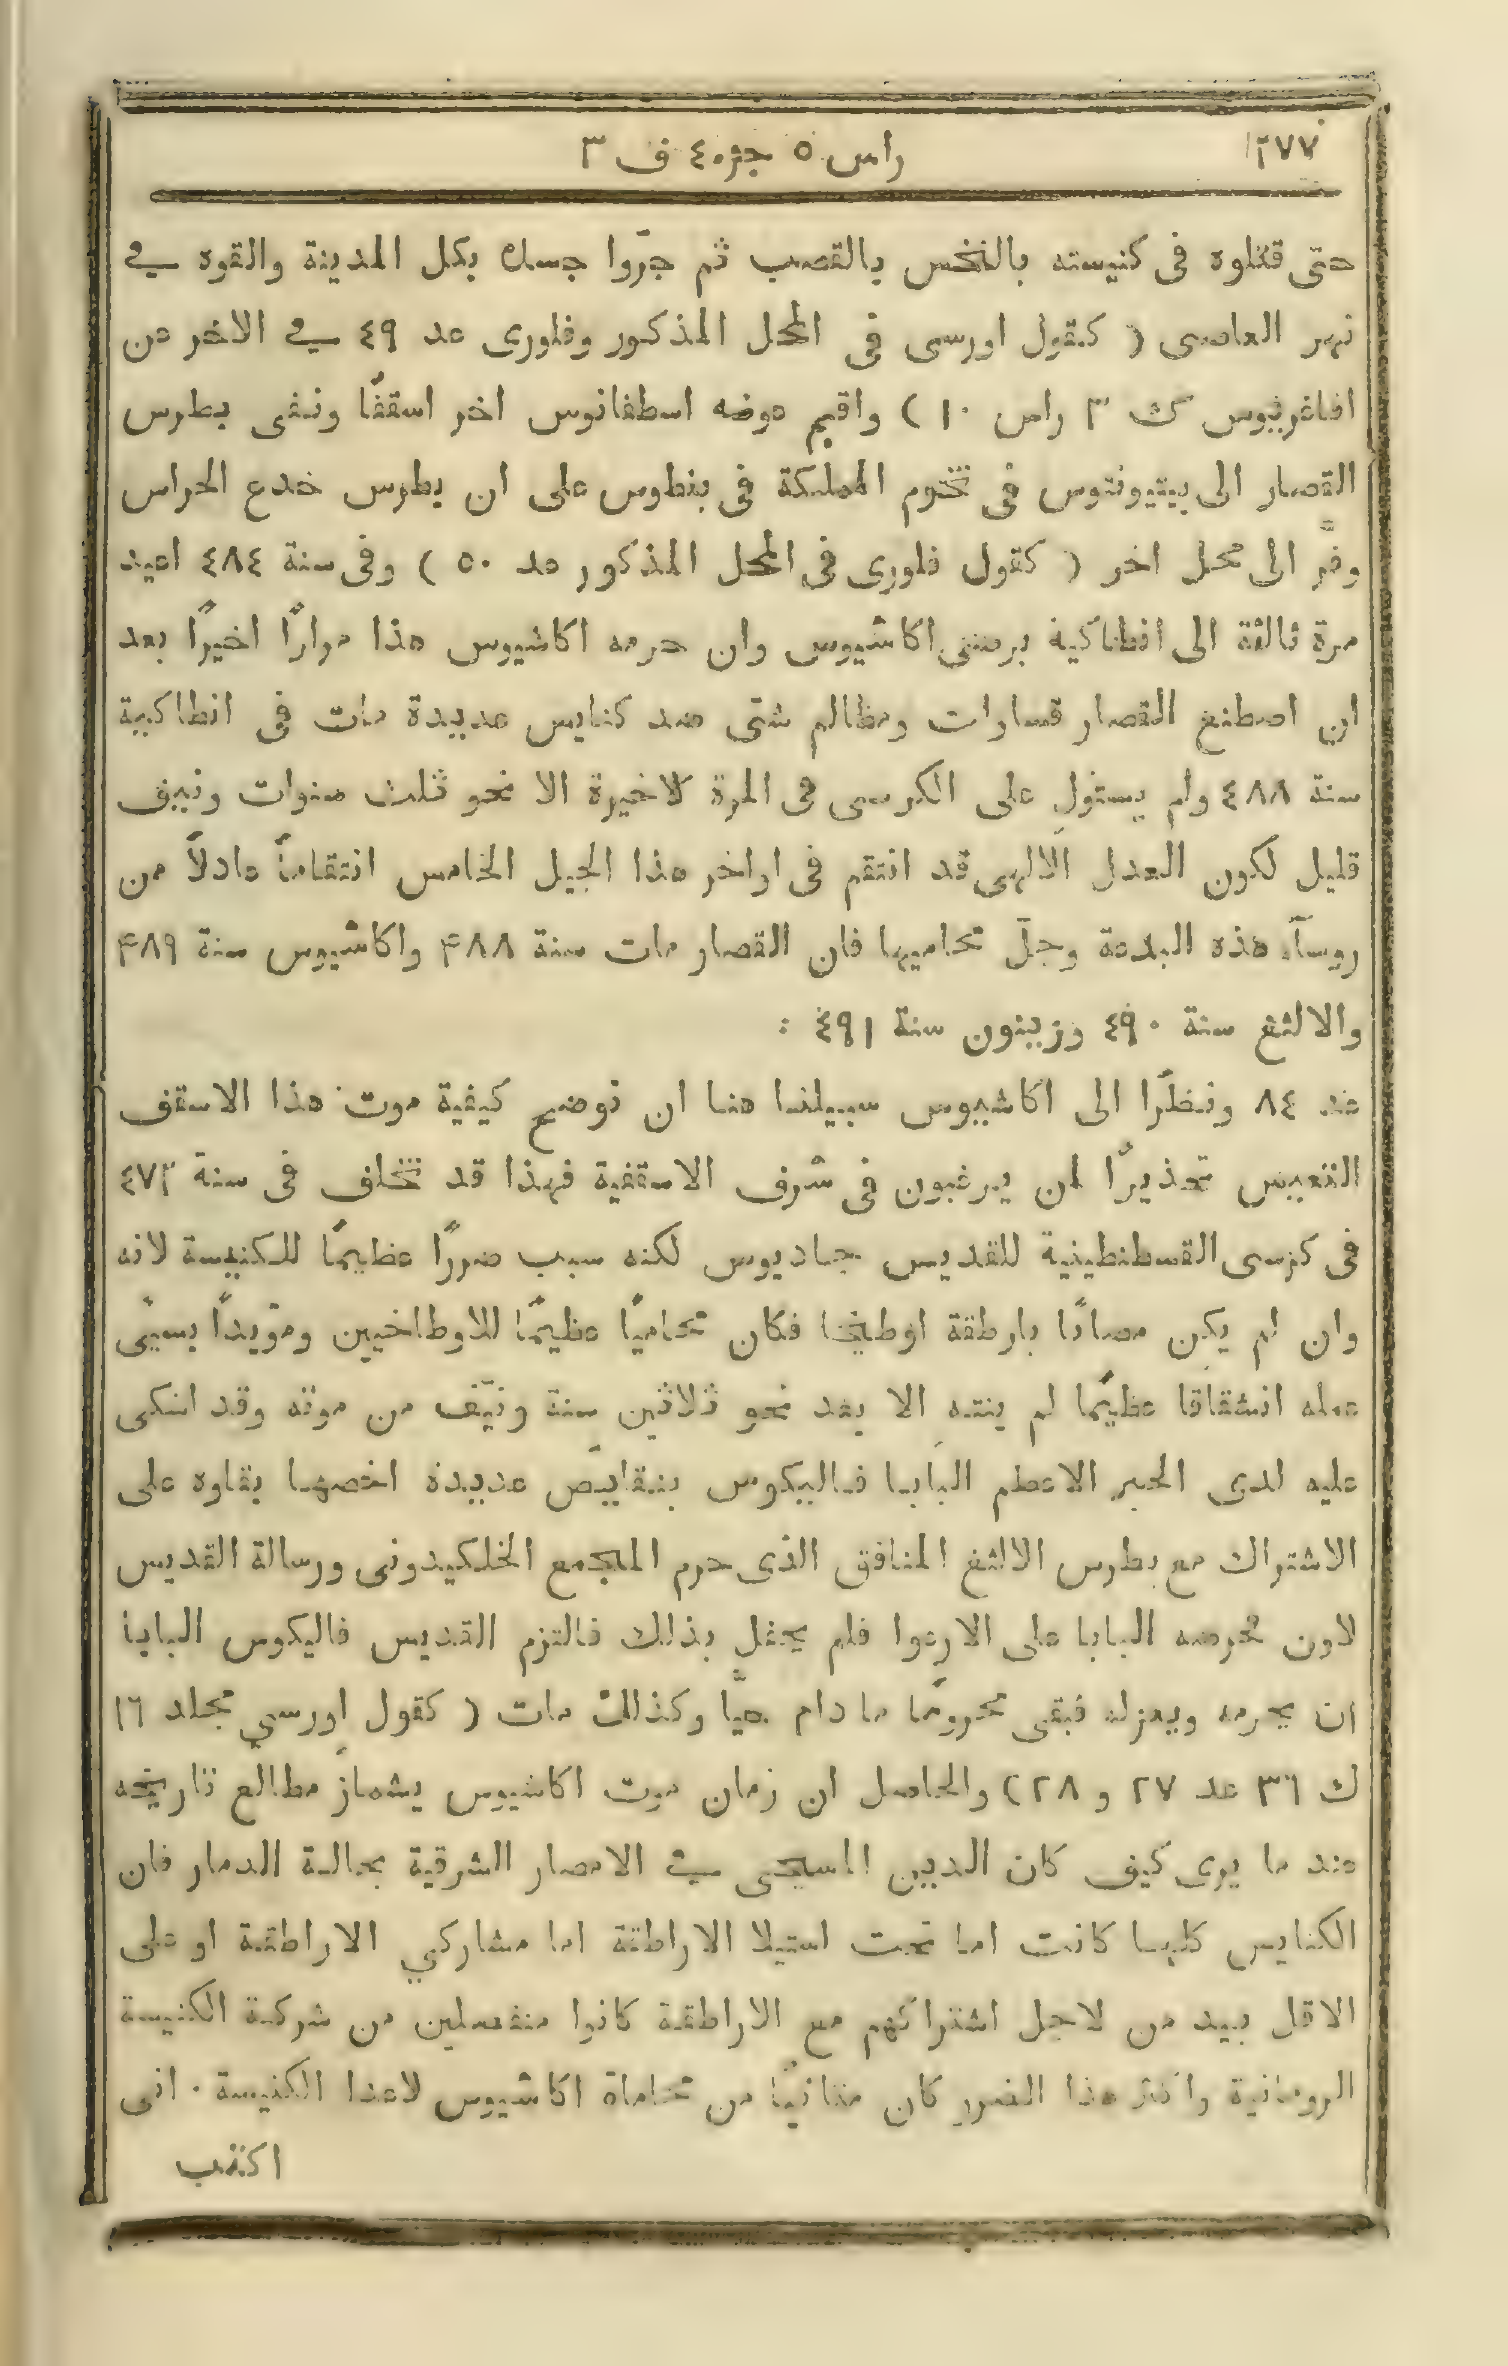 ٢٧٧
راس ٥ جزء ٤ ف ٣
حتى قتلوه فى كنيسته بالنخس بالقصب ثم جرّوا جسده بكل المدينة والقوه في
نهر العاصى ( كقول اورسى فى المحل المذكور وفلورى عد ٤٩ في الاخر عن
افاغريوس ك ٣ راس ١٠ ) واقيم عوضه اسطفانوس اخر اسقفًا ونفى بطرس
القصار الى بيتيونتوس فى تخوم المملكة فى بنطوس على ان بطرس خدع الحراس
وفرّ الى محل اخر ( كقول فلورى فى المحل المذكور عد ٥٠ ) وفى سنة ٤٨٤ اعيد
مرة ثالثة الى انطاكية برضى اكاشيوس وان حرمه اكاشيوس هذا مرارًا اخيرًا بعد
ان اصطنع القصار قساوات ومظالم شتى ضد كنايس عديدة مات فى انطاكية
سنة ٤٨٨ ولم يستولِ على الكرسى فى المرة الاخيرة الا نحو ثلث سنوات ونيف
قليل لكون العدل الالهى قد انتقم فى اواخر هذا الجيل الخامس انتقامًا عادلاً من
روسآء هذه البدعة وجلّ محاميها فان القصار مات سنة ۴٨٨ واكاشيوس سنة ۴٨٩
والالثغ سنة ٤٩٠ وزينون سنة ٤٩١ :
عد ٨٤ ونظرًا الى اكاشيوس سبيلنا هنا ان نوضح كيفية موت هذا الاسقف
التعيس تحذيرًا لمن يرغبون فى شرف الاسقفية فهذا قد تخلف فى سنة ٤٧٢
فى كرسى القسطنطينية للقديس جناديوس لكنه سبب ضررًا عظيمًا للكنيسة لانه
وان لم يكن مصابًا بارطقة اوطيخا فكان محاميًا عظيمًا للاوطاخيين ومؤيدًا بسيّى
عمله انشقاقا عظيمًا لم ينته الا بعد نحو ثلاثين سنة ونيّف من موته وقد اشتكى
عليه لدى الحبر الاعظم البابا فاليكوس بنقايص عديدة اخصها بقاوه على
الاشتراك مع بطرس الالثغ المنافق الذى حرم المجمع الخلكيدونى ورسالة القديس
لاون فحرضه البابا على الارعوا فلم يحفل بذلك فالتزم القديس فاليكوس البابا
ان يحرمه ويعزله فبقى محرومًا ما دام حيًّا وكذلك مات ( كقول اورسي مجلد ١٦
ك ٣٦ عد ٢٧ و ٢٨ ) والحاصل ان زمان موت اكاشيوس يشماز مطالع تاريخه
عند ما يرى كيف كان الدين المسيحى في الامصار الشرقية بحالة الدمار فان
الكنايس كلها كانت اما تحت استيلا الاراطقة اما مشاركي الاراطقة او على
الاقل بيد من لاجل اشتراكهم مع الاراطقة كانوا منفصلين من شركة الكنيسة
الرومانية واكثر هذا الضرر كان متاتيًا من محاماة اكاشيوس لاعدا الكنيسة . انى
اكتب